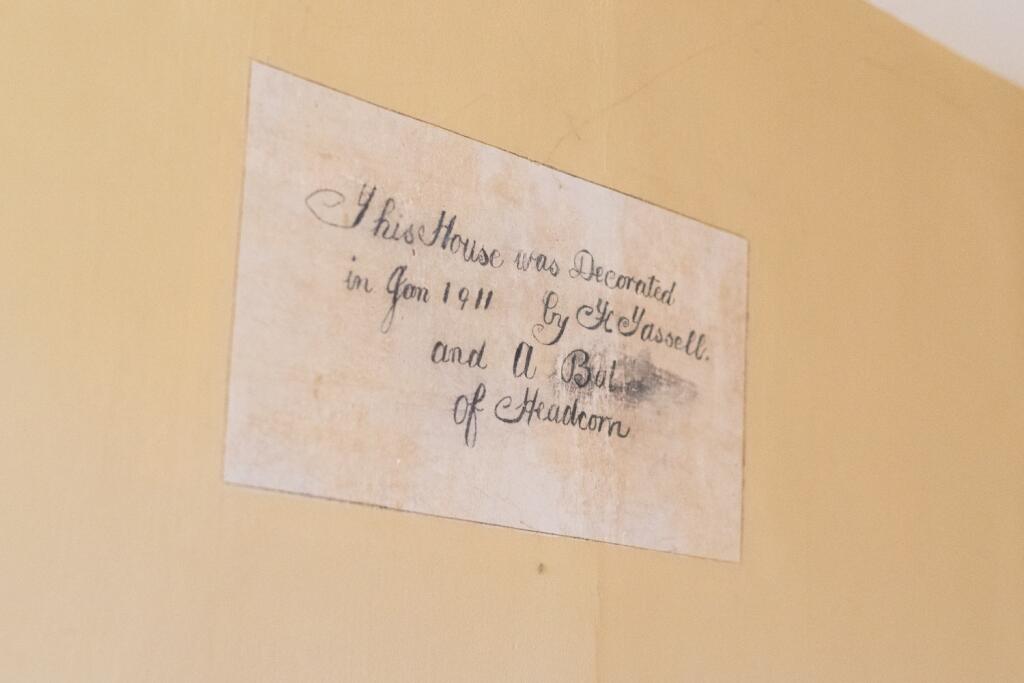 This House was Decorated
in Jan 1911 by H Tassell.
and A
of Headcorn